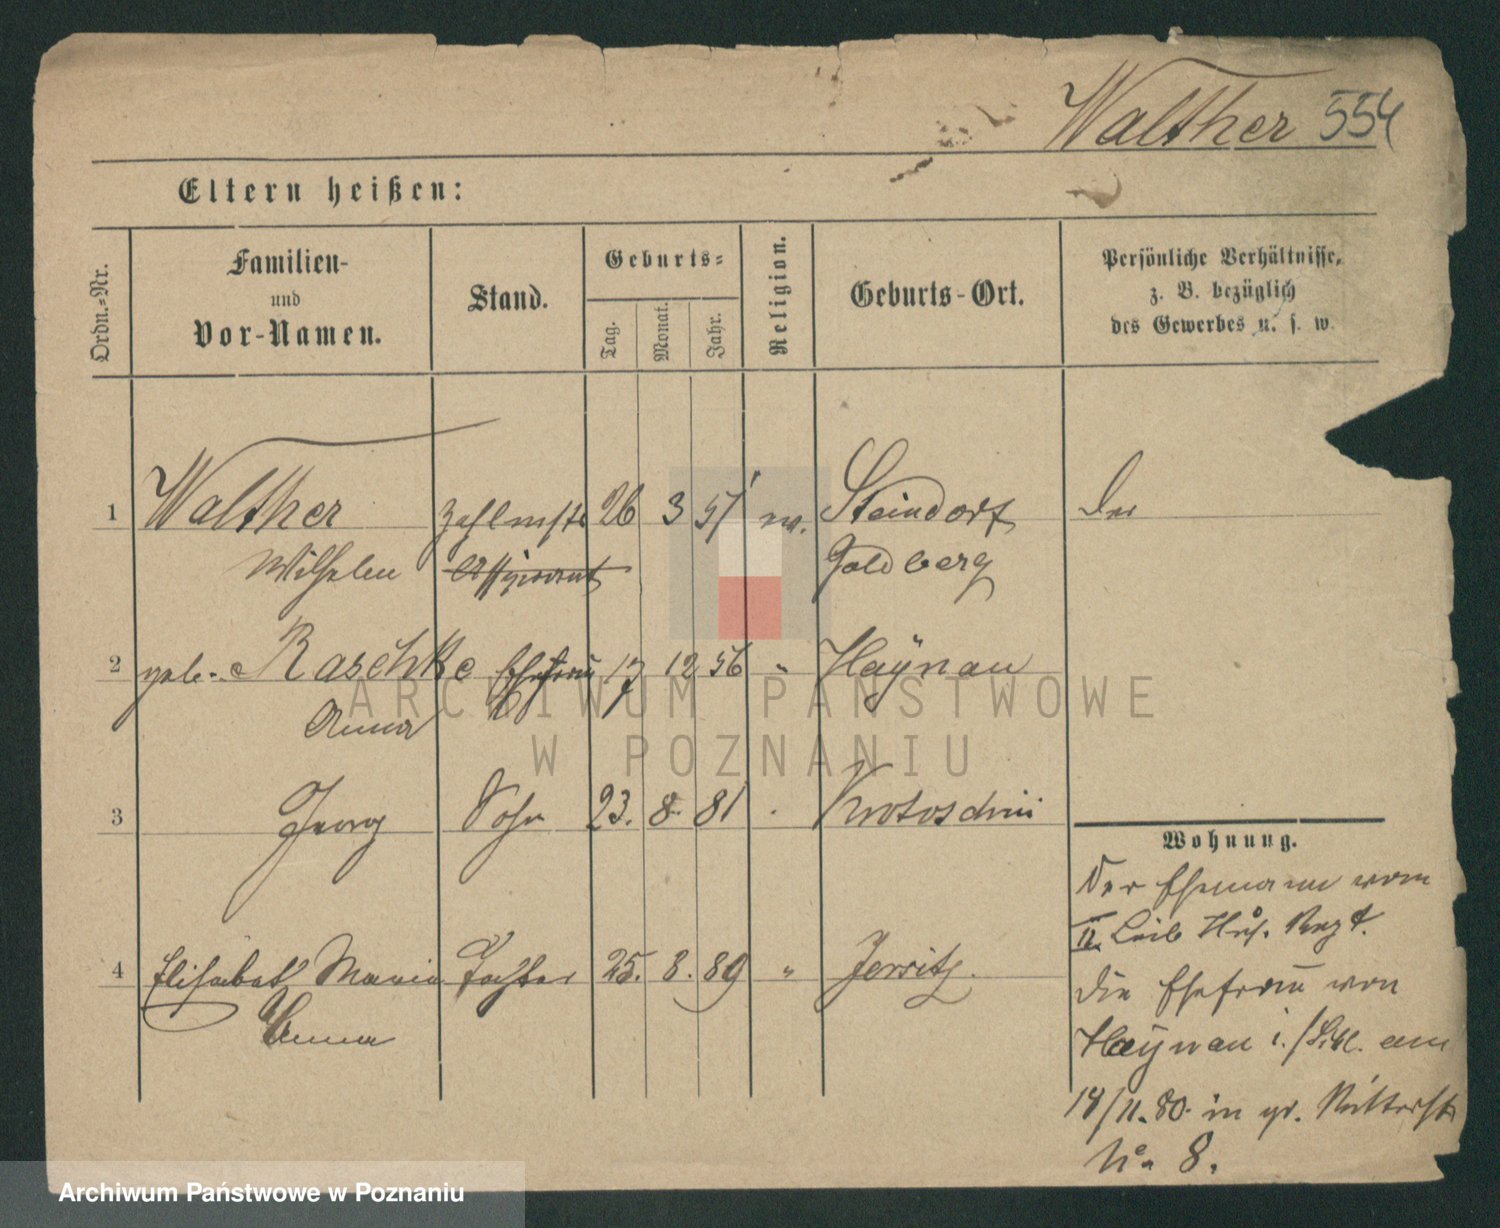 Walther 554
Eltern heißen:
Ordn.-Nr.
Familien-
und
Vor-Namen.
Stand.
Geburts-
Tag.
Monat.
Jahr.
Religion.
Geburts-Ort.
Persönliche Verhältnisse,
z. B. bezüglich
des Gewerbes u. s. w.
1 Walther Zahlmstr 26 3 51 ev. Steindorf Der
Wilhelm Aspirant Goldberg
2 geb. Raschke Ehefrau 17 12 56 " Haynau
Anna
3 Georg Sohn 23. 8. 81 Krotoschin
Wohnung.
Der Ehemann vom
II. Leib Hus. Regt.
4 Elisabet Maria Tochter 25. 8. 89 " Jersitz.
Anna
die Ehefrau von
Haynau i./Schl. am
18/11. 80. in gr. Ritterstr
No 8.
ARCHIWUM PAŃSTWOWE
W POZNANIU
Archiwum Państwowe w Poznaniu